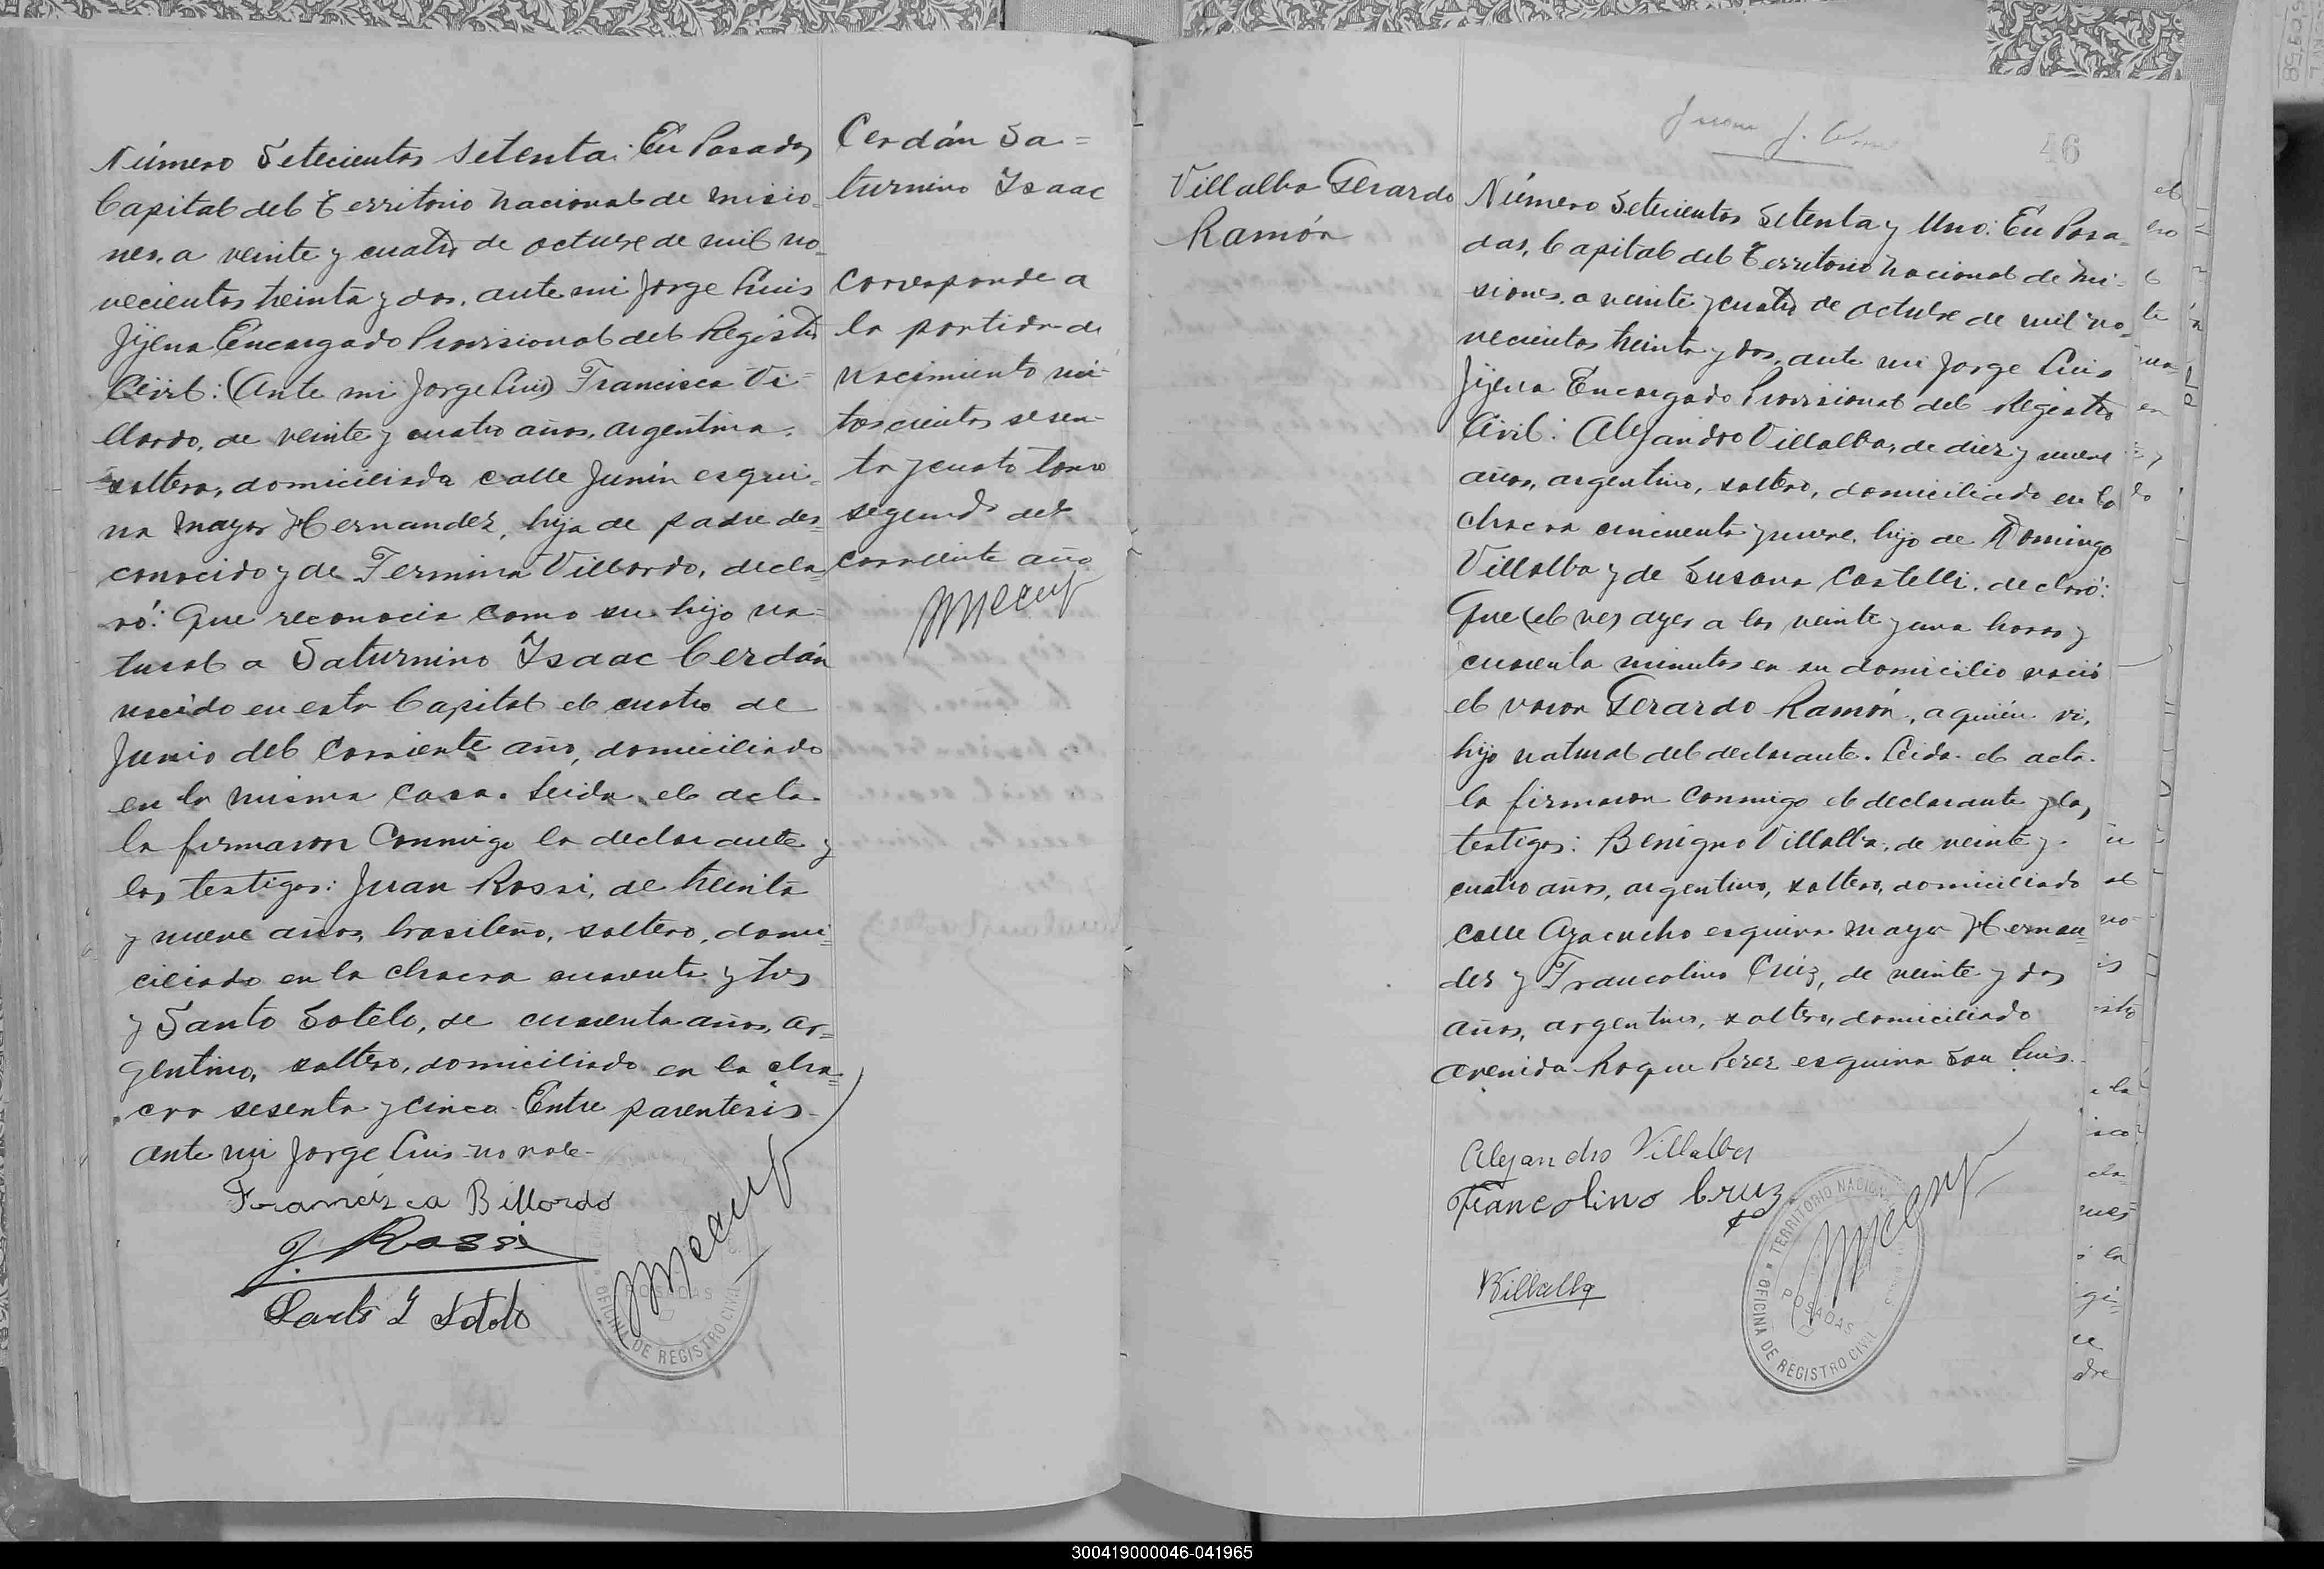 Número Setecientos Setenta: En Posadas,
Capital del Territorio Nacional de Misio-
nes, a veinte y cuatro de octubre de mil no-
vecientos treinta y dos, ante mi Jorge Luis
Jijena Encargado Provisional del Registro
Civil: (Ante mi Jorge Luis) Francisca Vi-
llordo, de veinte y cuatro años, argentina,
soltera, domiciliada calle Junín esqui-
na Mayor Hernandez, hija de padre des-
conocido y de Fermina Villordo, decla-
ró: Que reconocia como su hijo na-
tural a Saturnino Isaac Cerdán
nacido en esta Capital el cuatro de
Junio del corriente año, domiciliado
en la misma casa. Leida el acta
la firmaron conmigo la declarante y
los testigos: Juan Rossi, de treinta
y nueve años, brasileño, soltero, domi-
ciliado en la chacra cuarenta y tres
y Santo Sotelo, de cuarenta años, ar-
gentino, soltero, domiciliado en la cha-
cra sesenta y cinco. Entre parentesis-
ante mi Jorge Luis-no vale-
Francisca Billordo
J. Rossi
Santo Sotelo
POSADAS
OFICINA DE REGISTRO CIVIL
Cerdán Sa=
turnino Isaac
Corresponde a
la partida de
nacimiento
trescientos sesen-
ta y cuatro tomo
segundo del
corriente año
46
Villalba Gerardo
Ramón
Número Setecientos Setenta y Uno: En Posa-
das, Capital del Territorio Nacional de Mi-
siones, a veinte y cuatro de octubre de mil no-
vecientos treinta y dos, ante mi Jorge Luis
Jijena Encargado Provisional del Registro
Civil: Alejandro Villalba, de diez y nueve
años, argentino, soltero, domiciliado en la
chacra cincuenta y nueve, hijo de Domingo
Villalba y de Susana Castelli, declaró:
Que (el ve) ayer a las veinte y una horas y
cuarenta minutos en su domicilio nació
el varon Gerardo Ramón, a quién vi,
hijo natural del declarante. Leida el acta
la firmaron conmigo el declarante y los
testigos: Benigno Villalba, de veinte y
cuatro años, argentino, soltero, domiciliado
calle Ayacucho esquina Mayor Hernan-
dez y Francolino Cruz, de veinte y dos
años, argentino, soltero, domiciliado
avenida Roque Perez esquina San Luis.
Alejandro Villalba
Francolino Cruz
BVillalba
TERRITORIO NACIONAL
POSADAS
OFICINA DE REGISTRO CIVIL
300419000046-041965